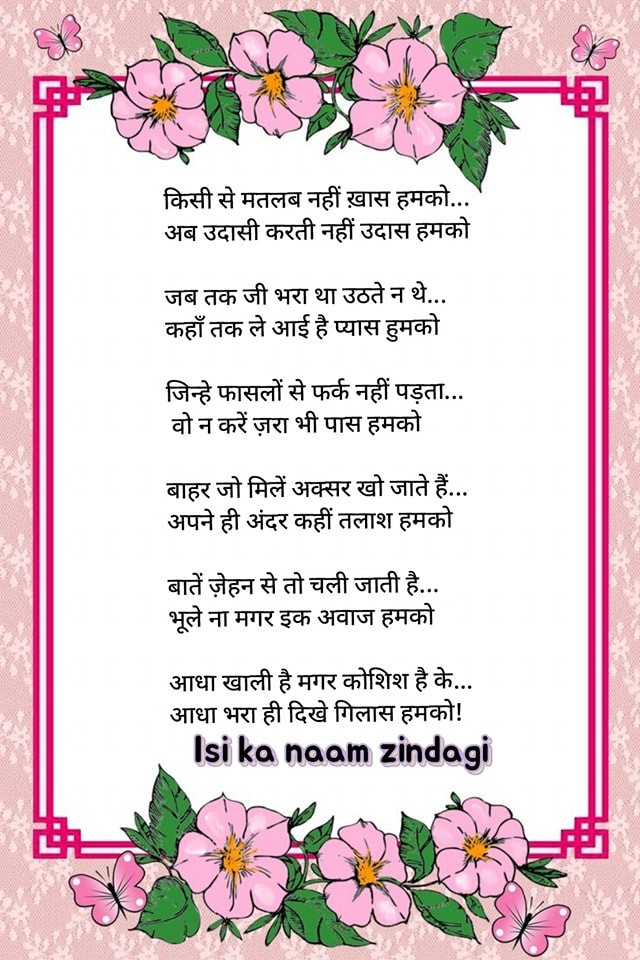 किसी से मतलब नहीं ख़ास हमको...
अब उदासी करती नहीं उदास हमको
जब तक जी भरा था उठते न थे...
कहाँ तक ले आई है प्यास हुमको
जिन्हे फासलों से फर्क नहीं पड़ता...
वो न करें ज़रा भी पास हमको
बाहर जो मिलें अक्सर खो जाते हैं...
अपने ही अंदर कहीं तलाश हमको
बातें ज़ेहन से तो चली जाती है...
भूले ना मगर इक अवाज हमको
आधा खाली है मगर कोशिश है के...
आधा भरा ही दिखे गिलास हमको!
Isi ka naam zindagi